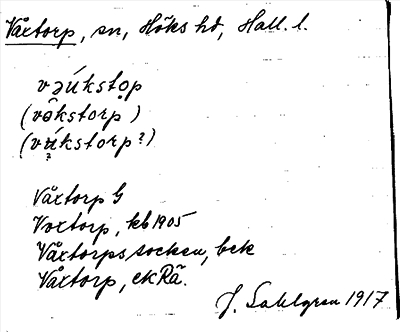 Våxtorp, sn, Höks hd, Hall. l.
vəúkstọp
(vôkstorp)
(vúkstorp?)
Våxtorp G
Voxtorp, kb 1905
Våxtorps socken, bek
Våxtorp, ekRä.
J. Sahlgren 1917